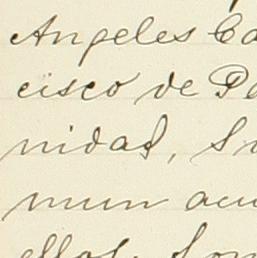 Angeles Ca
cisco de Pa
nidad, Su
mun acu
ellos. Son